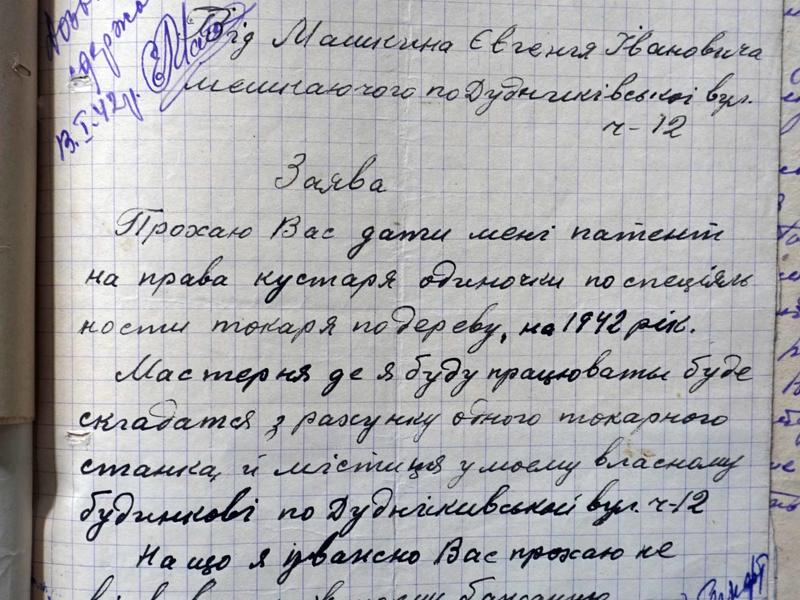 Від Машкина Євгенія Івановича
мешкаючого по Дудниківській вул.
ч-12
13.I.42р.
Заява
Прохаю Вас дати мені патент
на права кустаря одиночки по спеціяль
ности токаря по дереву, на 1942 рік.
Мастерня де я буду працювати буде
складатся з рахунку одного токарного
станка, й містиця у моєму власному
будинкові по Дудніківській вул. ч-12
На що я уважно Вас прохаю не